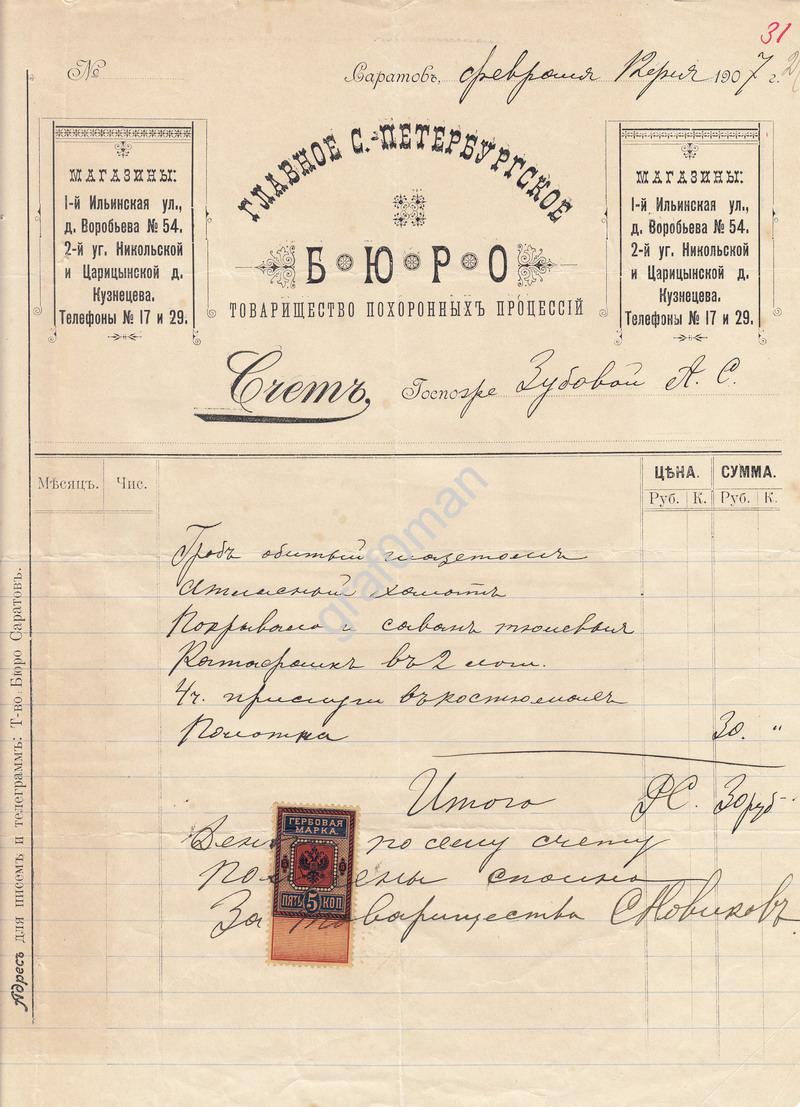 31
№
Саратовъ, февраля 12 дня 1907 г.
ГЛАВНОЕ С.-ПЕТЕРБУРГСКОЕ
БЮРО
ТОВАРИЩЕСТВО ПОХОРОННЫХЪ ПРОЦЕССІЙ
МАГАЗИНЫ:
1-й Ильинская ул.,
д. Воробьева № 54.
2-й уг. Никольской
и Царицынской д.
Кузнецева.
Телефоны № 17 и 29.
МАГАЗИНЫ:
1-й Ильинская ул.,
д. Воробьева № 54.
2-й уг. Никольской
и Царицынской д.
Кузнецева.
Телефоны № 17 и 29.
Счетъ, Госпоже Зубовой А. С.
Мѣсяцъ. Чис. ЦѢНА. СУММА.
Руб. К. Руб. К.
Гробъ обитый глазетомъ
Атласный
Покрывало и саванъ тюлевыя
Катафалкъ въ 2 лош.
4 ч. прислуги въ костюмахъ
Полотна 30. "
Итого РС. 30 руб
по сему счету
сполна
За товарищества С Новиковъ
ГЕРБОВАЯ
МАРКА
ПЯТЬ 5 КОП
Адресъ для писемъ и телеграммъ: Т-во Бюро Саратовъ.
grafoman